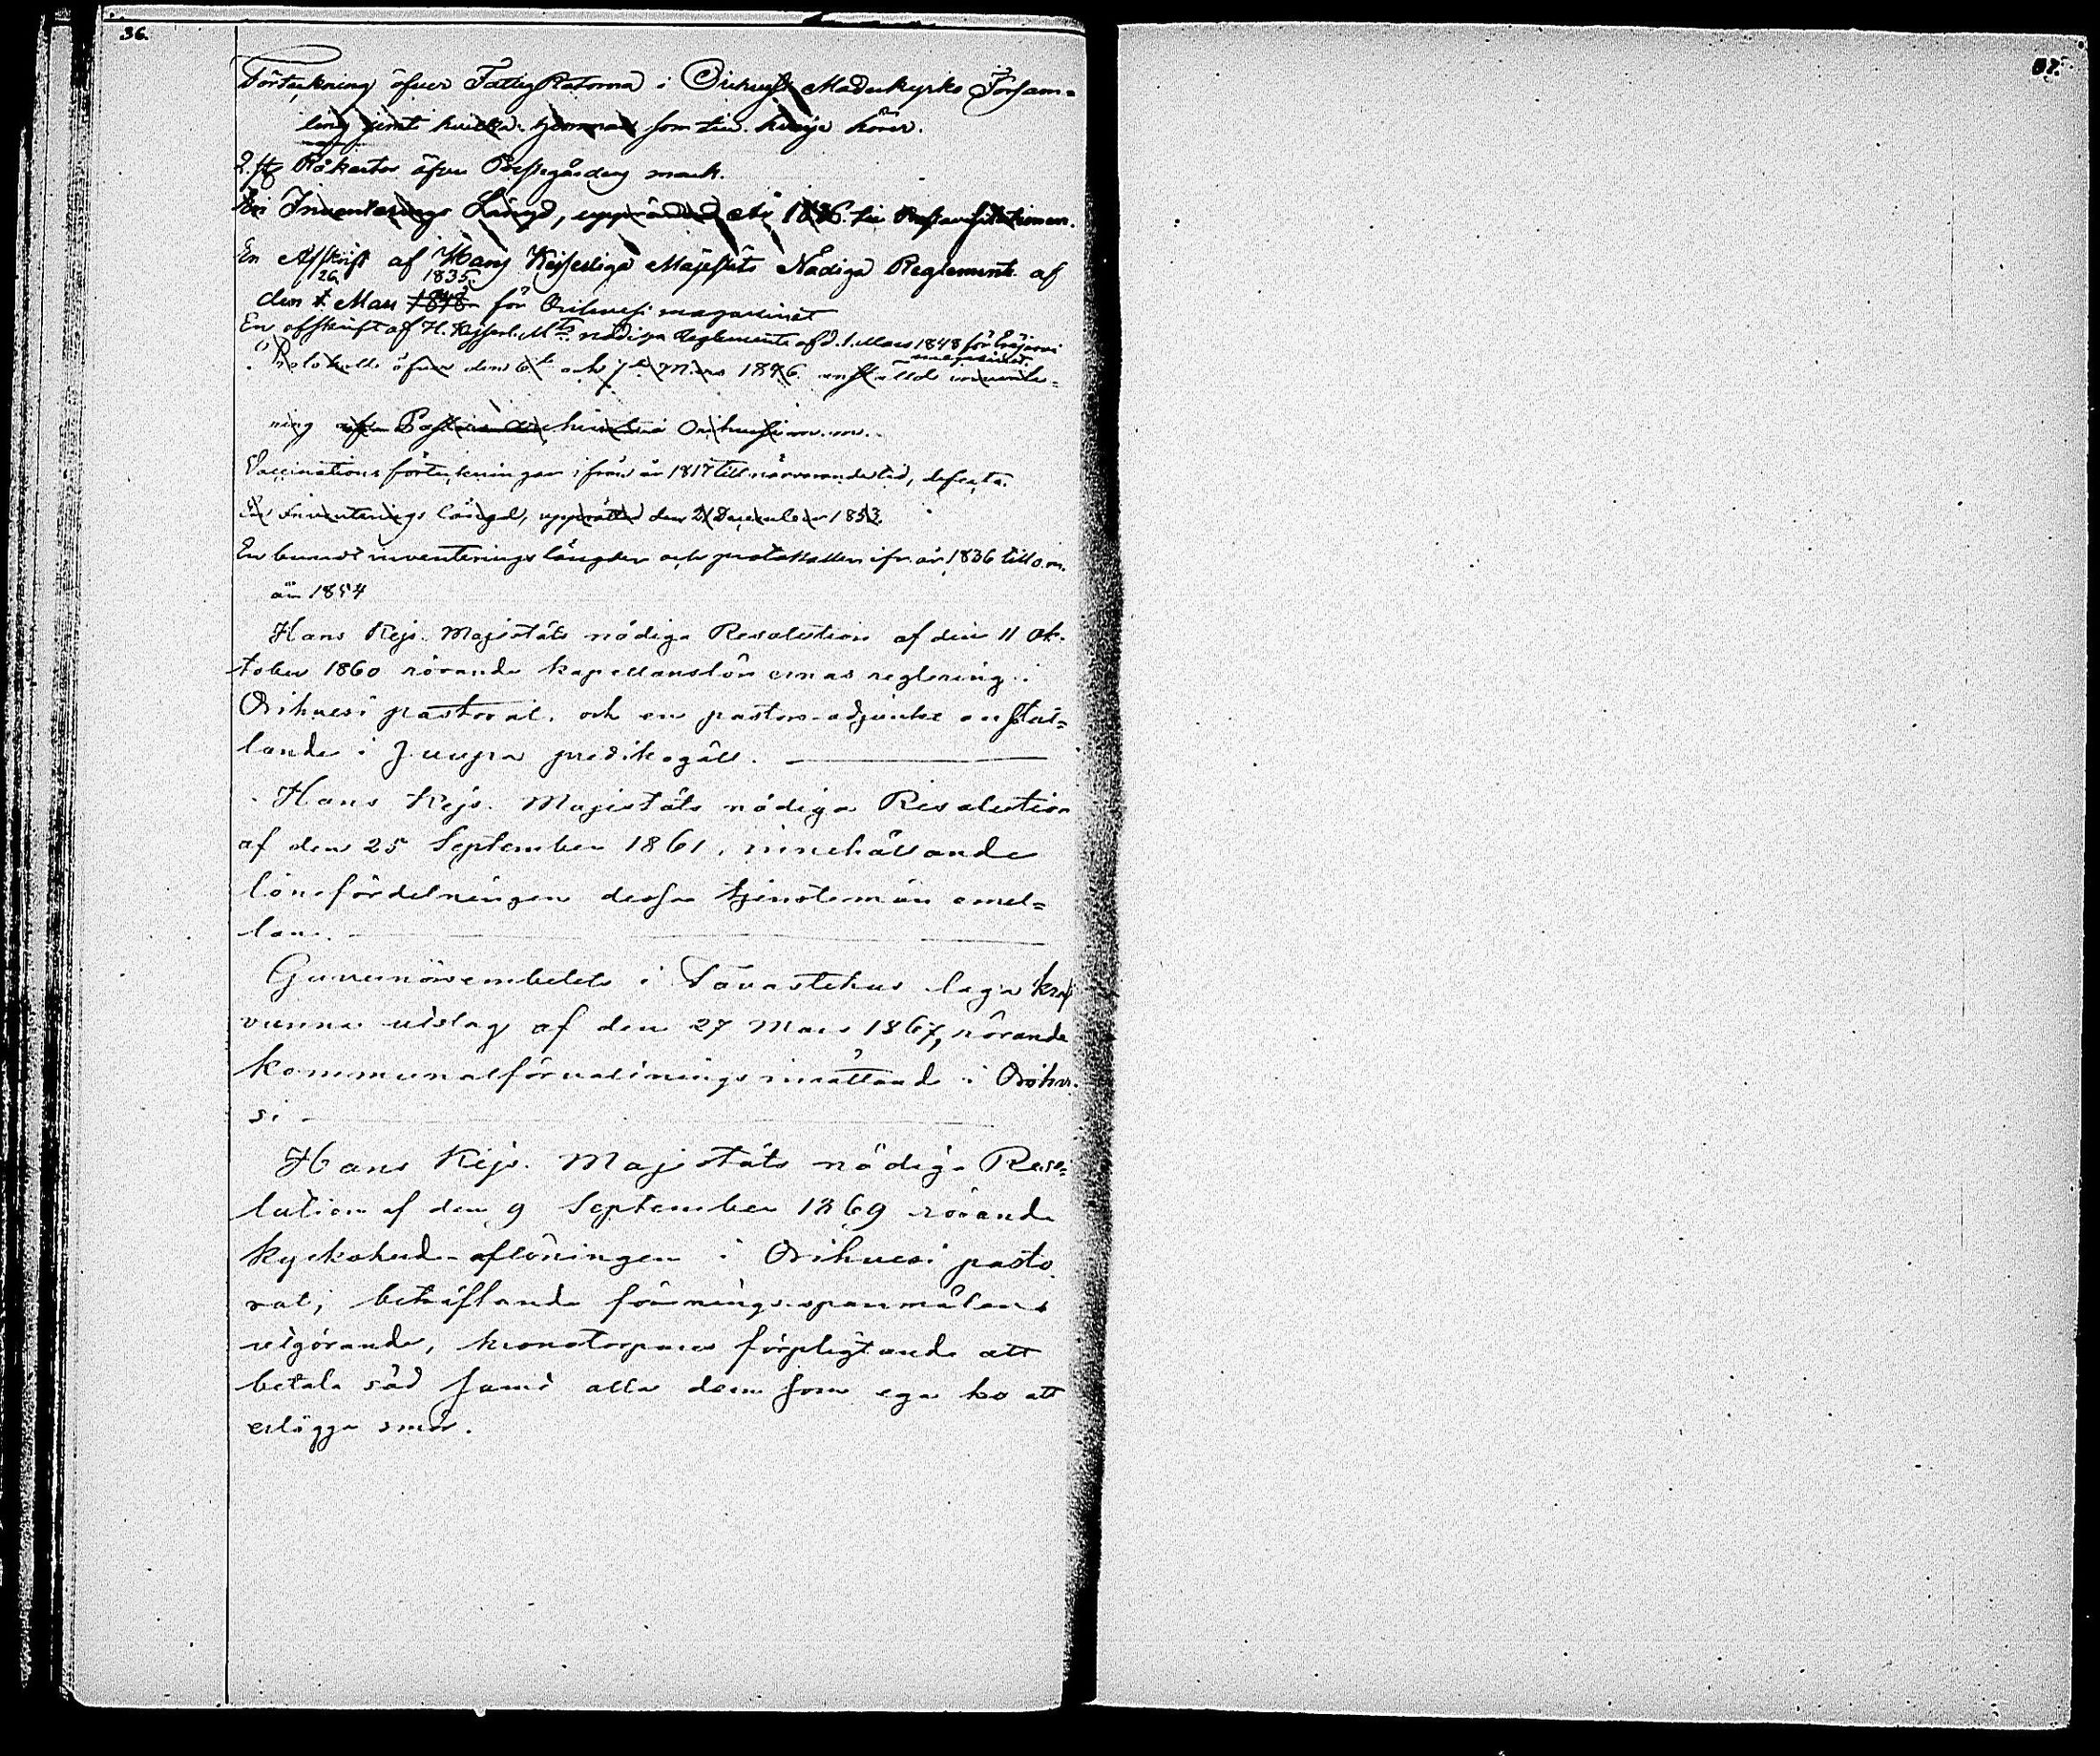 36.
37.
Förteckning öfver FattigRotorna i Orihvesi Moderkyrko Försam=
ling jemte hvilka hemman som till hvarje hörer.
2. st. Råkartor öfver Prestegårdens mark.
En Inventerings Längd, upprättad År 1836. till Prostvisitationen.
En Afskrift af Hans Kejserliga Majestäts Nådiga Reglemente af
26 1835
den 1 Mars 1848 för Orihvesi magasinet
En afskrift af H. Kejserl. Mts nådiga Reglemente af d. 1. Mars 1848 för Eräjärvi
magasinet.
Protokoll öfver den 6te och 7de Mars 1846 anstälde invente=
ring Pastors Archivet i Orihvesi m.m.
Vaccinations förteckningar ifrån år 1817 till närvarande tid, defecta.
En Inventerings längd, upprättad den 21 December 1853.
En bundt inventerings längder och protokoller ifr. år 1836 till o.m.
år 1854
Hans Kejs. Majestäts nådiga Resolution af den 11 Ok-
tober 1860 rörande kapellanslönernas reglering i
Orihvesi pastorat, och en pastors-adjunkt anstäl=
lande i Juupa predikogäll.
Hans Kejs. Majestäts nådiga Resolution
af den 25 September 1861, innehållande
lönefördelningen dessa tjenstemän emel=
lan.
Guvernörsembetets i Tavastehus laga kraf
vunna utslag af den 27 Mars 1867, rörande
kommunalförvaltnings inrättande i Orihve
si
Hans Kejs. Majestäts nådiga Reso=
lution af den 9 September 1869 rörande
kyrkoherde-aflöningen i Orihvesi pasto
rat, beträffande spanmålens
utgörande, kronotorpares förpligtande att
betala säd samt alla dem som ega ko att
erlägga smör.